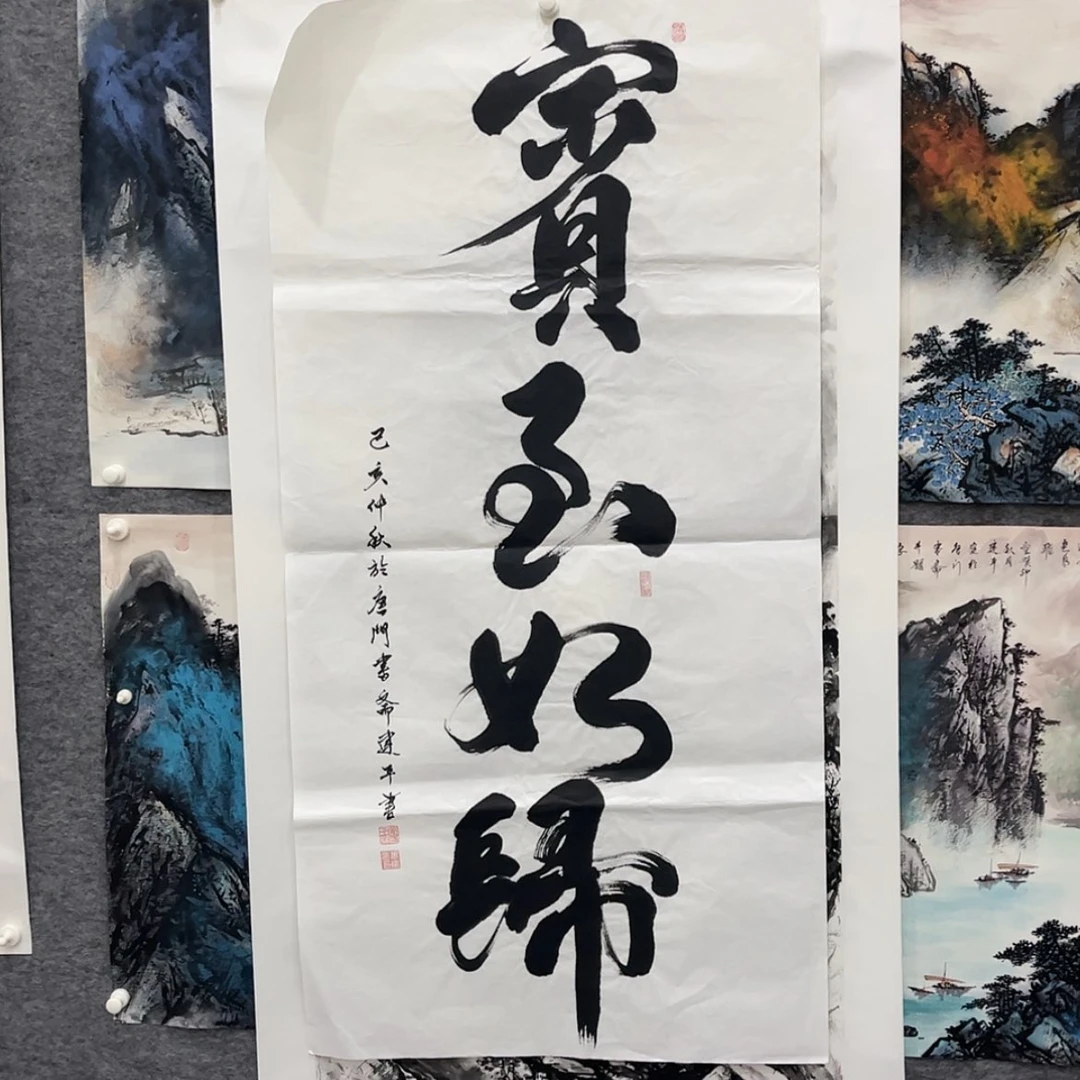 賓至如歸
己亥仲秋於唐門紫齋建平書